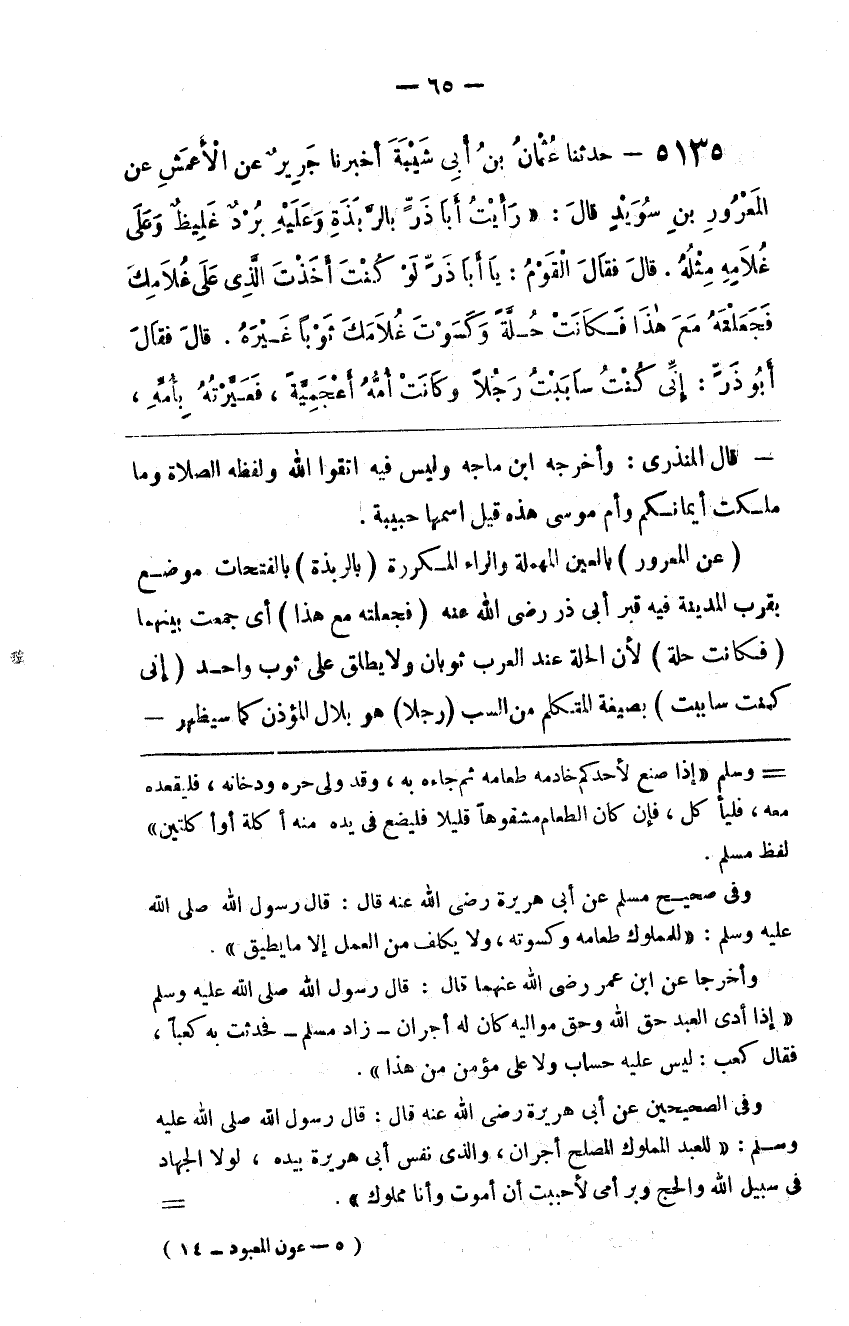 — ٦٥ —
٥١٣٥ — حدثنا عُثْمَانُ بنُ أَبِى شَيْبَةَ أخبرنا جَرِيرٌ عن الْأَعمَشِ عن
المَعْرُورِ بنِ سُوَيْدٍ قالَ : « رَأَيْتُ أَبَا ذَرٍّ بالرَّبَذَةِ وَعَلَيْهِ بُرْدٌ غَلِيظٌ وَعَلَى
غُلَامِهِ مِثْلُهُ . قالَ فقالَ الْقَوْمُ : يَا أَبَا ذَرٍّ لَوْ كُنْتَ أَخَذْتَ الَّذِى عَلَى غُلَامِكَ
فَجَعَلْتَهُ مَعَ هٰذَا فَكَانَتْ حُلَّةً وَكَسَوْتَ غُلَامَكَ ثَوْبًا غَيْرَهُ . قالَ فقالَ
أَبُو ذَرٍّ : إِنِّى كُنْتُ سَابَبْتُ رَجُلاً وكَانَتْ أُمُّهُ أَعْجَمِيَّةً ، فَعَيَّرْتُهُ بِأُمِّهِ ،
— قال المنذرى : وأخرجه ابن ماجه وليس فيه اتقوا الله ولفظه الصلاة وما
ملكت أيمانكم وأم موسى هذه قيل اسمها حبيبة .
( عن المعرور ) بالعين المهملة والراء المكررة ( بالربذة ) بالفتحات موضع
بقرب المدينة فيه قبر أبى ذر رضى الله عنه ( فجعلته مع هذا ) أى جمعت بينهما
( فكانت حلة ) لأن الحلة عند العرب ثوبان ولا يطلق على ثوب واحد ( إنى
كنت ساببت ) بصيغة المتكلم من السب (رجلا) هو بلال المؤذن كما سيظهر —
= وسلم «إذا صنع لأحدكم خادمه طعامه ثم جاءه به ، وقد ولى حره ودخانه ، فليقعده
معه ، فليأ كل ، فإن كان الطعام مشفوهاً قليلا فليضع فى يده منه أ كلة أو أ كلتين»
لفظ مسلم .
وفى صحيح مسلم عن أبى هريرة رضى الله عنه قال : قال رسول الله صلى الله
عليه وسلم : «للمملوك طعامه وكسوته ، ولا يكلف من العمل إلا ما يطيق » .
وأخرجا عن ابن عمر رضى الله عنهما قال : قال رسول الله صلى الله عليه وسلم
« إذا أدى العبد حق الله وحق مواليه كان له أجران – زاد مسلم – فحدثت به كعباً ،
فقال كعب : ليس عليه حساب ولا على مؤمن من هذا » .
وفى الصحيحين عن أبى هريرة رضى الله عنه قال : قال رسول الله صلى الله عليه
وسلم : « للعبد المملوك المصلح أجران ، والذى نفس أبى هريرة بيده ، لولا الجهاد
فى سبيل الله والحج وبر أمى لأحببت أن أموت وأنا مملوك » . =
( ٥ — عون المعبود – ١٤ )